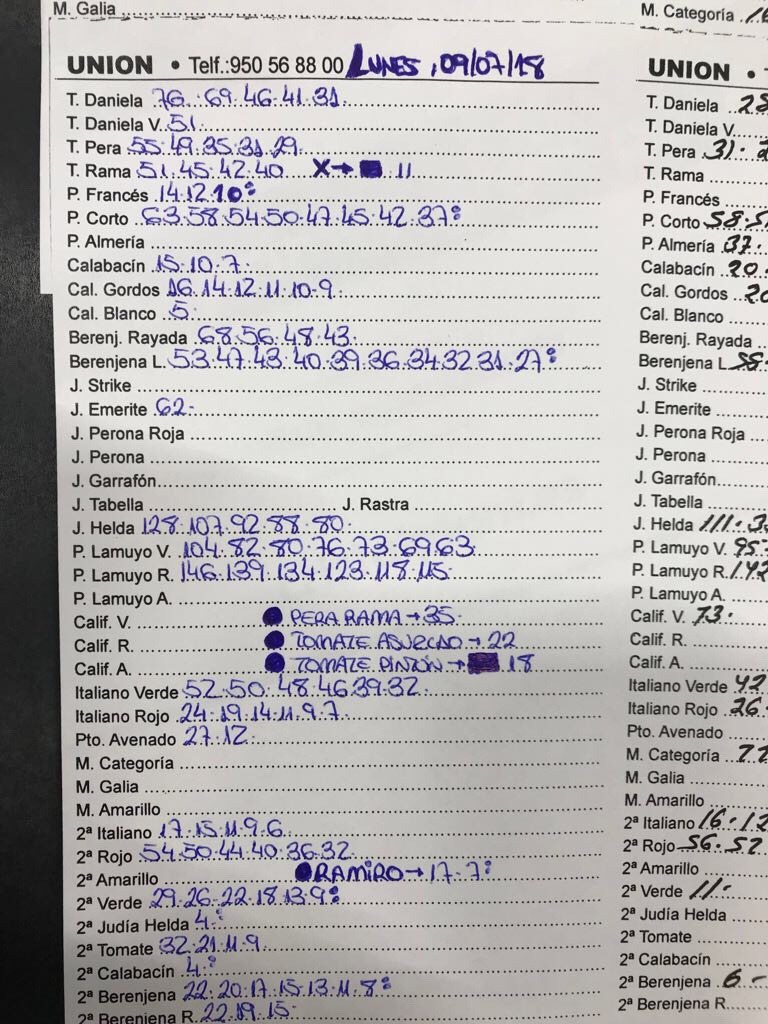 M. Galia
M. Categoría 16
UNION • Telf.:950 56 88 00 LUNES, 09/07/18
T. Daniela 76.69.46.41.31.
T. Daniela V. 51.
T. Pera 55.49.35.31.29
T. Rama 51.45.42.40 X→ 11
P. Francés 14.12.10:
P. Corto 63.58.54.50.47.45.42.37:
P. Almería
Calabacín 15.10.7.
Cal. Gordos 16.14.12.11.10.9.
Cal. Blanco 5.
Berenj. Rayada 68.56.48.43.
Berenjena L. 53.47.43.40.39.36.34.32.31.27:
J. Strike
J. Emerite 62.
J. Perona Roja
J. Perona
J. Garrafón
J. Tabella J. Rastra
J. Helda 128.107.92.88.80.
P. Lamuyo V. 104.82.80.76.73.69.63.
P. Lamuyo R. 146.139.134.123.118.115.
P. Lamuyo A.
Calif. V. ● PERA RAMA→35.
Calif. R. ● TOMATE ASURCADO→22
Calif. A. ● TOMATE PINTÓN→ 18
Italiano Verde 52.50.48.46.39.32.
Italiano Rojo 24.19.14.11.9.7.
Pto. Avenado 27.12.
M. Categoría
M. Galia
M. Amarillo
2ª Italiano 17.15.11.9.6
2ª Rojo 54.50.44.40.36.32.
2ª Amarillo ● RAMIRO→17.7:
2ª Verde 29.26.22.18.13.9:
2ª Judía Helda 4.:
2ª Tomate 32.21.11.9
2ª Calabacín 4.:
2ª Berenjena 22.20.17.15.13.11.8:
2ª Berenjena R. 22.19.15.
UNION •
T. Daniela 28
T. Daniela V.
T. Pera 31.
T. Rama
P. Francés
P. Corto 58.5
P. Almería 37.
Calabacín 20.
Cal. Gordos 20
Cal. Blanco
Berenj. Rayada
Berenjena L.
J. Strike
J. Emerite
J. Perona Roja
J. Perona
J. Garrafón
J. Tabella
J. Helda 111.3
P. Lamuyo V. 95
P. Lamuyo R. 142
P. Lamuyo A.
Calif. V. 73.
Calif. R.
Calif. A.
Italiano Verde 42
Italiano Rojo 26.
Pto. Avenado
M. Categoría 22
M. Galia
M. Amarillo
2ª Italiano 16.12
2ª Rojo 56.52
2ª Amarillo
2ª Verde 11.
2ª Judía Helda
2ª Tomate
2ª Calabacín
2ª Berenjena 6-
2ª Berenjena R.